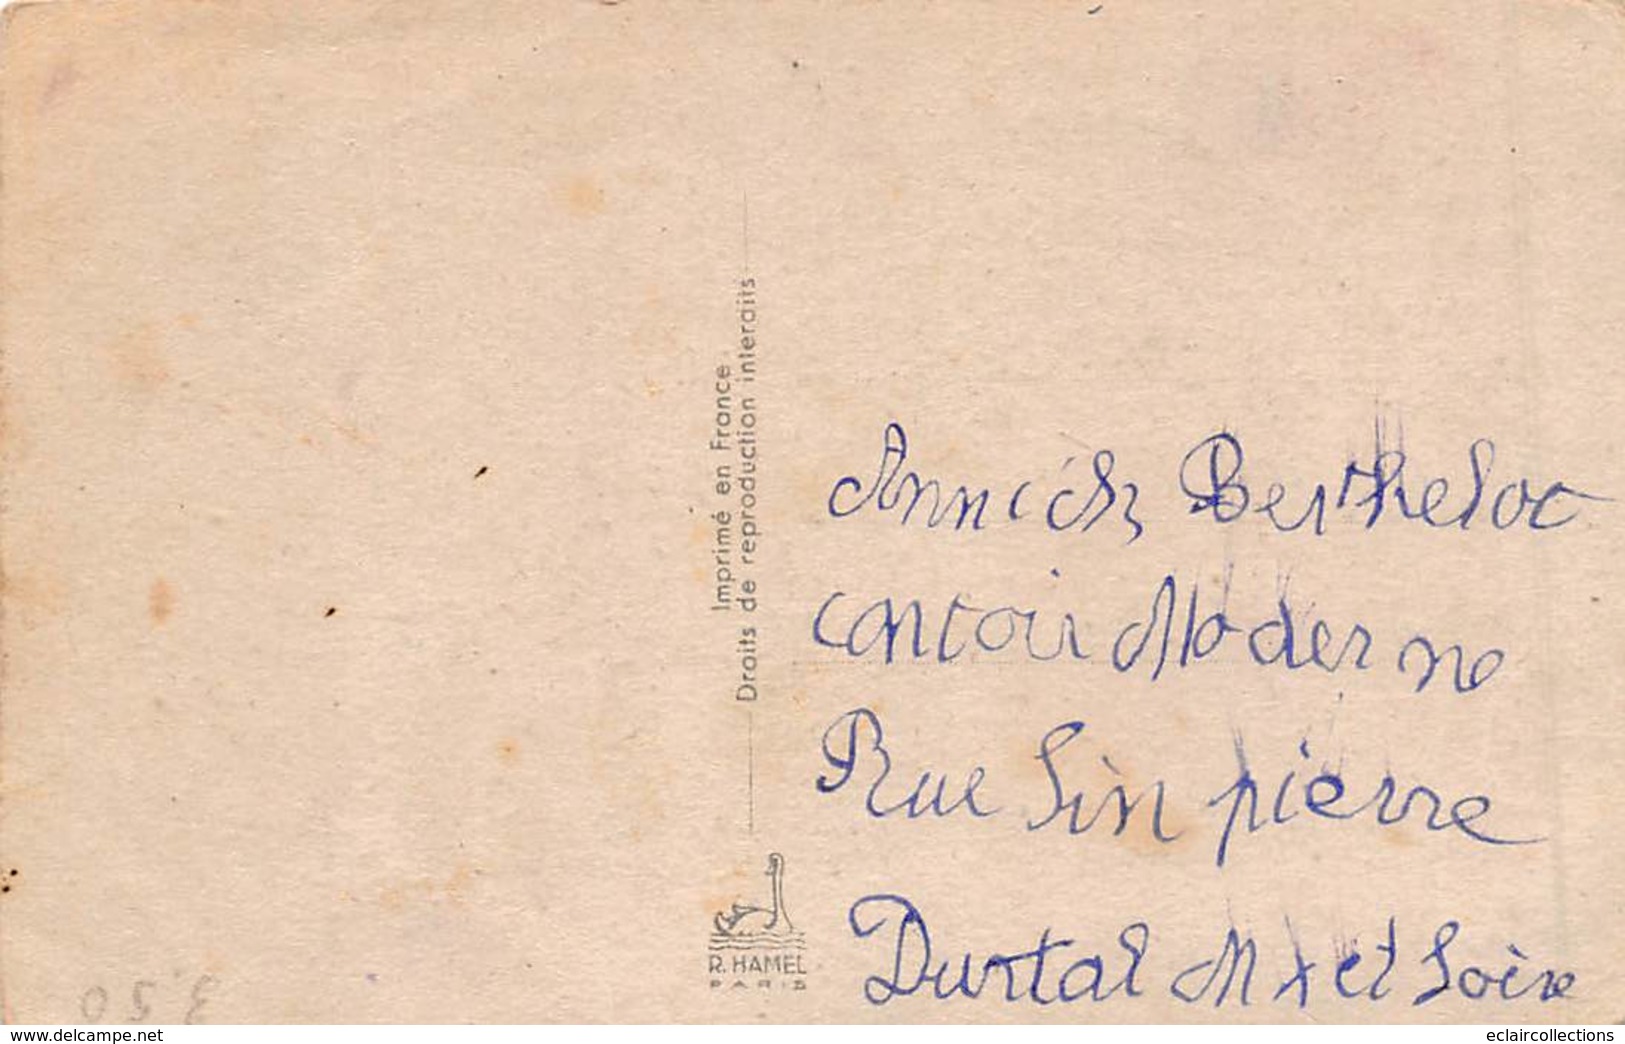 Imprimé en France
Droits de reproduction interdits
R. HAMEL
PARIS
Annick Berthelot
contoir Moderne
Rue Sin pierre
Durtal M et Loire
350
delcampe.net
eclaircollections